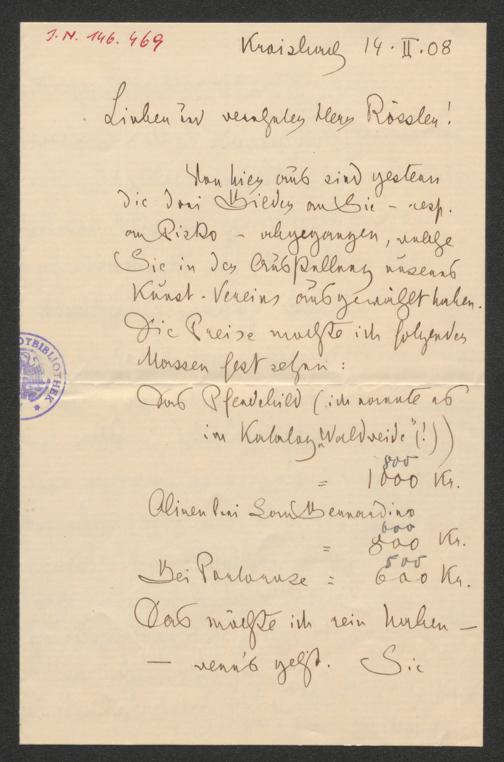 J.N. 146.469
Kraiburg 14.II.08
Lieber und verehrter Herr Rössler!
Von hier aus sind gestern
die drei Bilder an Sie – resp.
an Pisko – abgegangen, welche
Sie in der Ausstellung unseres
Kunst-Vereins ausgewählt haben.
Die Preise möchte ich folgender
Massen fest setzen:
Das Pferdebild (ich nannte es
im Katalog "Waldweide" (!))
800
= 1000 Kr.
San Bernardino
600
= 800 Kr.
500
Bei = 600 Kr.
Das möchte ich rein haben –
– wenn's geht. Sie
STADTBIBLIOTHEK